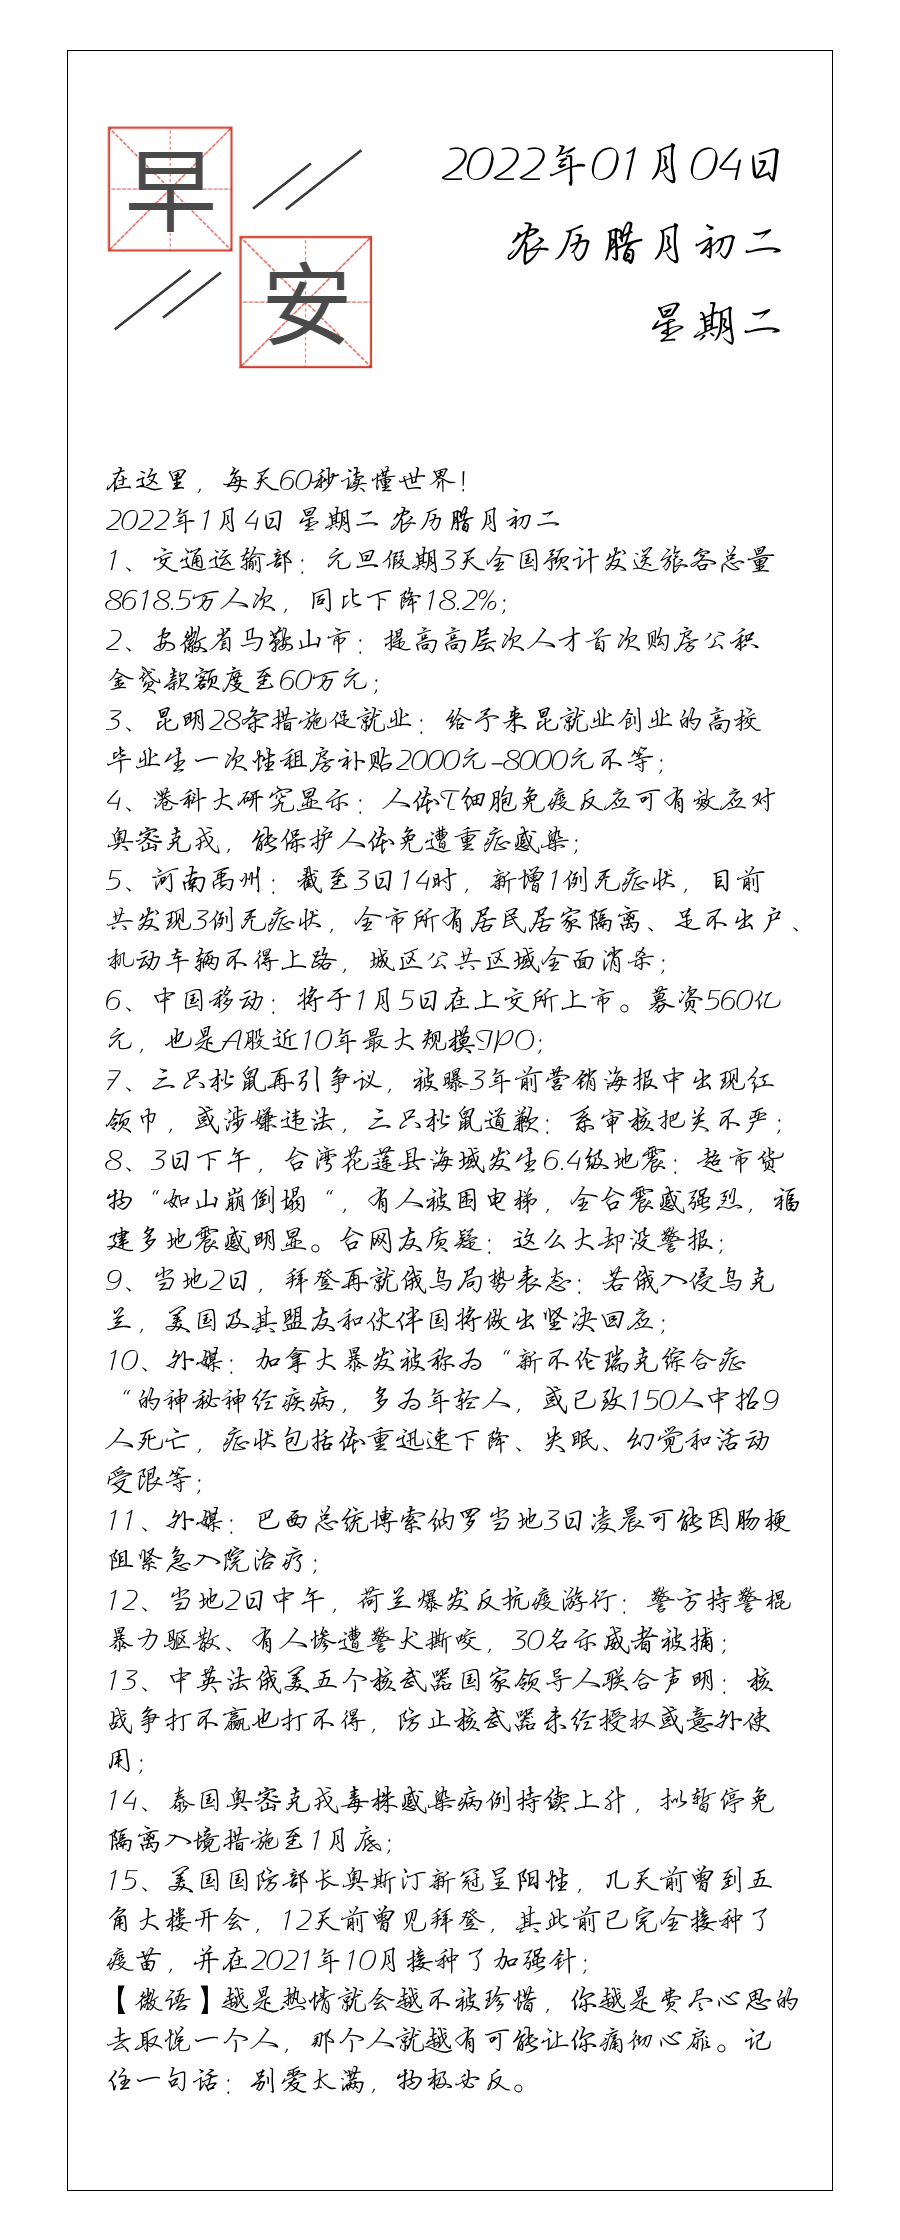 早
安
2022年01月04日
农历腊月初二
星期二
在这里，每天60秒读懂世界！
2022年1月4日 星期二 农历腊月初二
1、交通运输部：元旦假期3天全国预计发送旅客总量
8618.5万人次，同比下降18.2%；
2、安徽省马鞍山市：提高高层次人才首次购房公积
金贷款额度至60万元；
3、昆明28条措施促就业：给予来昆就业创业的高校
毕业生一次性租房补贴2000元-8000元不等；
4、港科大研究显示：人体T细胞免疫反应可有效应对
奥密克戎，能保护人体免遭重症感染；
5、河南禹州：截至3日14时，新增1例无症状，目前
共发现3例无症状，全市所有居民居家隔离、足不出户、
机动车辆不得上路，城区公共区域全面消杀；
6、中国移动：将于1月5日在上交所上市。募资560亿
元，也是A股近10年最大规模IPO；
7、三只松鼠再引争议，被曝3年前营销海报中出现红
领巾，或涉嫌违法，三只松鼠道歉：系审核把关不严；
8、3日下午，台湾花莲县海域发生6.4级地震：超市货
物“如山崩倒塌“，有人被困电梯，全台震感强烈，福
建多地震感明显。台网友质疑：这么大却没警报；
9、当地2日，拜登再就俄乌局势表态：若俄入侵乌克
兰，美国及其盟友和伙伴国将做出坚决回应；
10、外媒：加拿大暴发被称为“新不伦瑞克综合症
“的神秘神经疾病，多为年轻人，或已致150人中招9
人死亡，症状包括体重迅速下降、失眠、幻觉和活动
受限等；
11、外媒：巴西总统博索纳罗当地3日凌晨可能因肠梗
阻紧急入院治疗；
12、当地2日中午，荷兰爆发反抗疫游行：警方持警棍
暴力驱散、有人惨遭警犬撕咬，30名示威者被捕；
13、中英法俄美五个核武器国家领导人联合声明：核
战争打不赢也打不得，防止核武器未经授权或意外使
用；
14、泰国奥密克戎毒株感染病例持续上升，拟暂停免
隔离入境措施至1月底；
15、美国国防部长奥斯汀新冠呈阳性，几天前曾到五
角大楼开会，12天前曾见拜登，其此前已完全接种了
疫苗，并在2021年10月接种了加强针；
【微语】越是热情就会越不被珍惜，你越是费尽心思的
去取悦一个人，那个人就越有可能让你痛彻心扉。记
住一句话：别爱太满，物极必反。